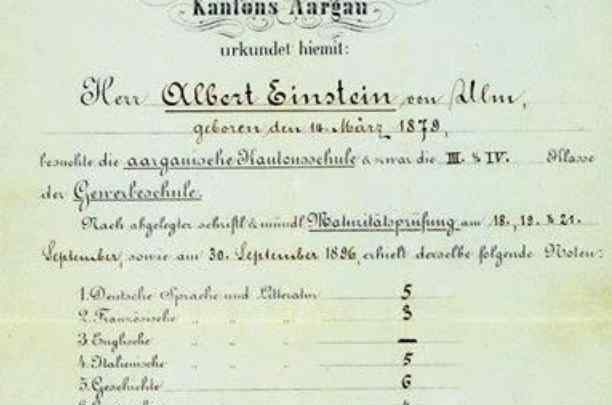 Kantons Aargau
urkundet hiemit:
Herr Albert Einstein von Ulm,
geboren den 14. März 1879,
besuchte die aargauische Kantonsschule & zwar die III. & IV. Klasse
der Gewerbeschule.
Nach abgelegter schriftl. & mündl. Maturitätsprüfung am 18., 19. & 21.
September, sowie am 30. September 1896, erhielt derselbe folgende Noten:
1. Deutsche Sprache und Litteratur 5
2. Französische " " " 3
3. Englische " " " —
4. Italienische " " " 5
5. Geschichte 6